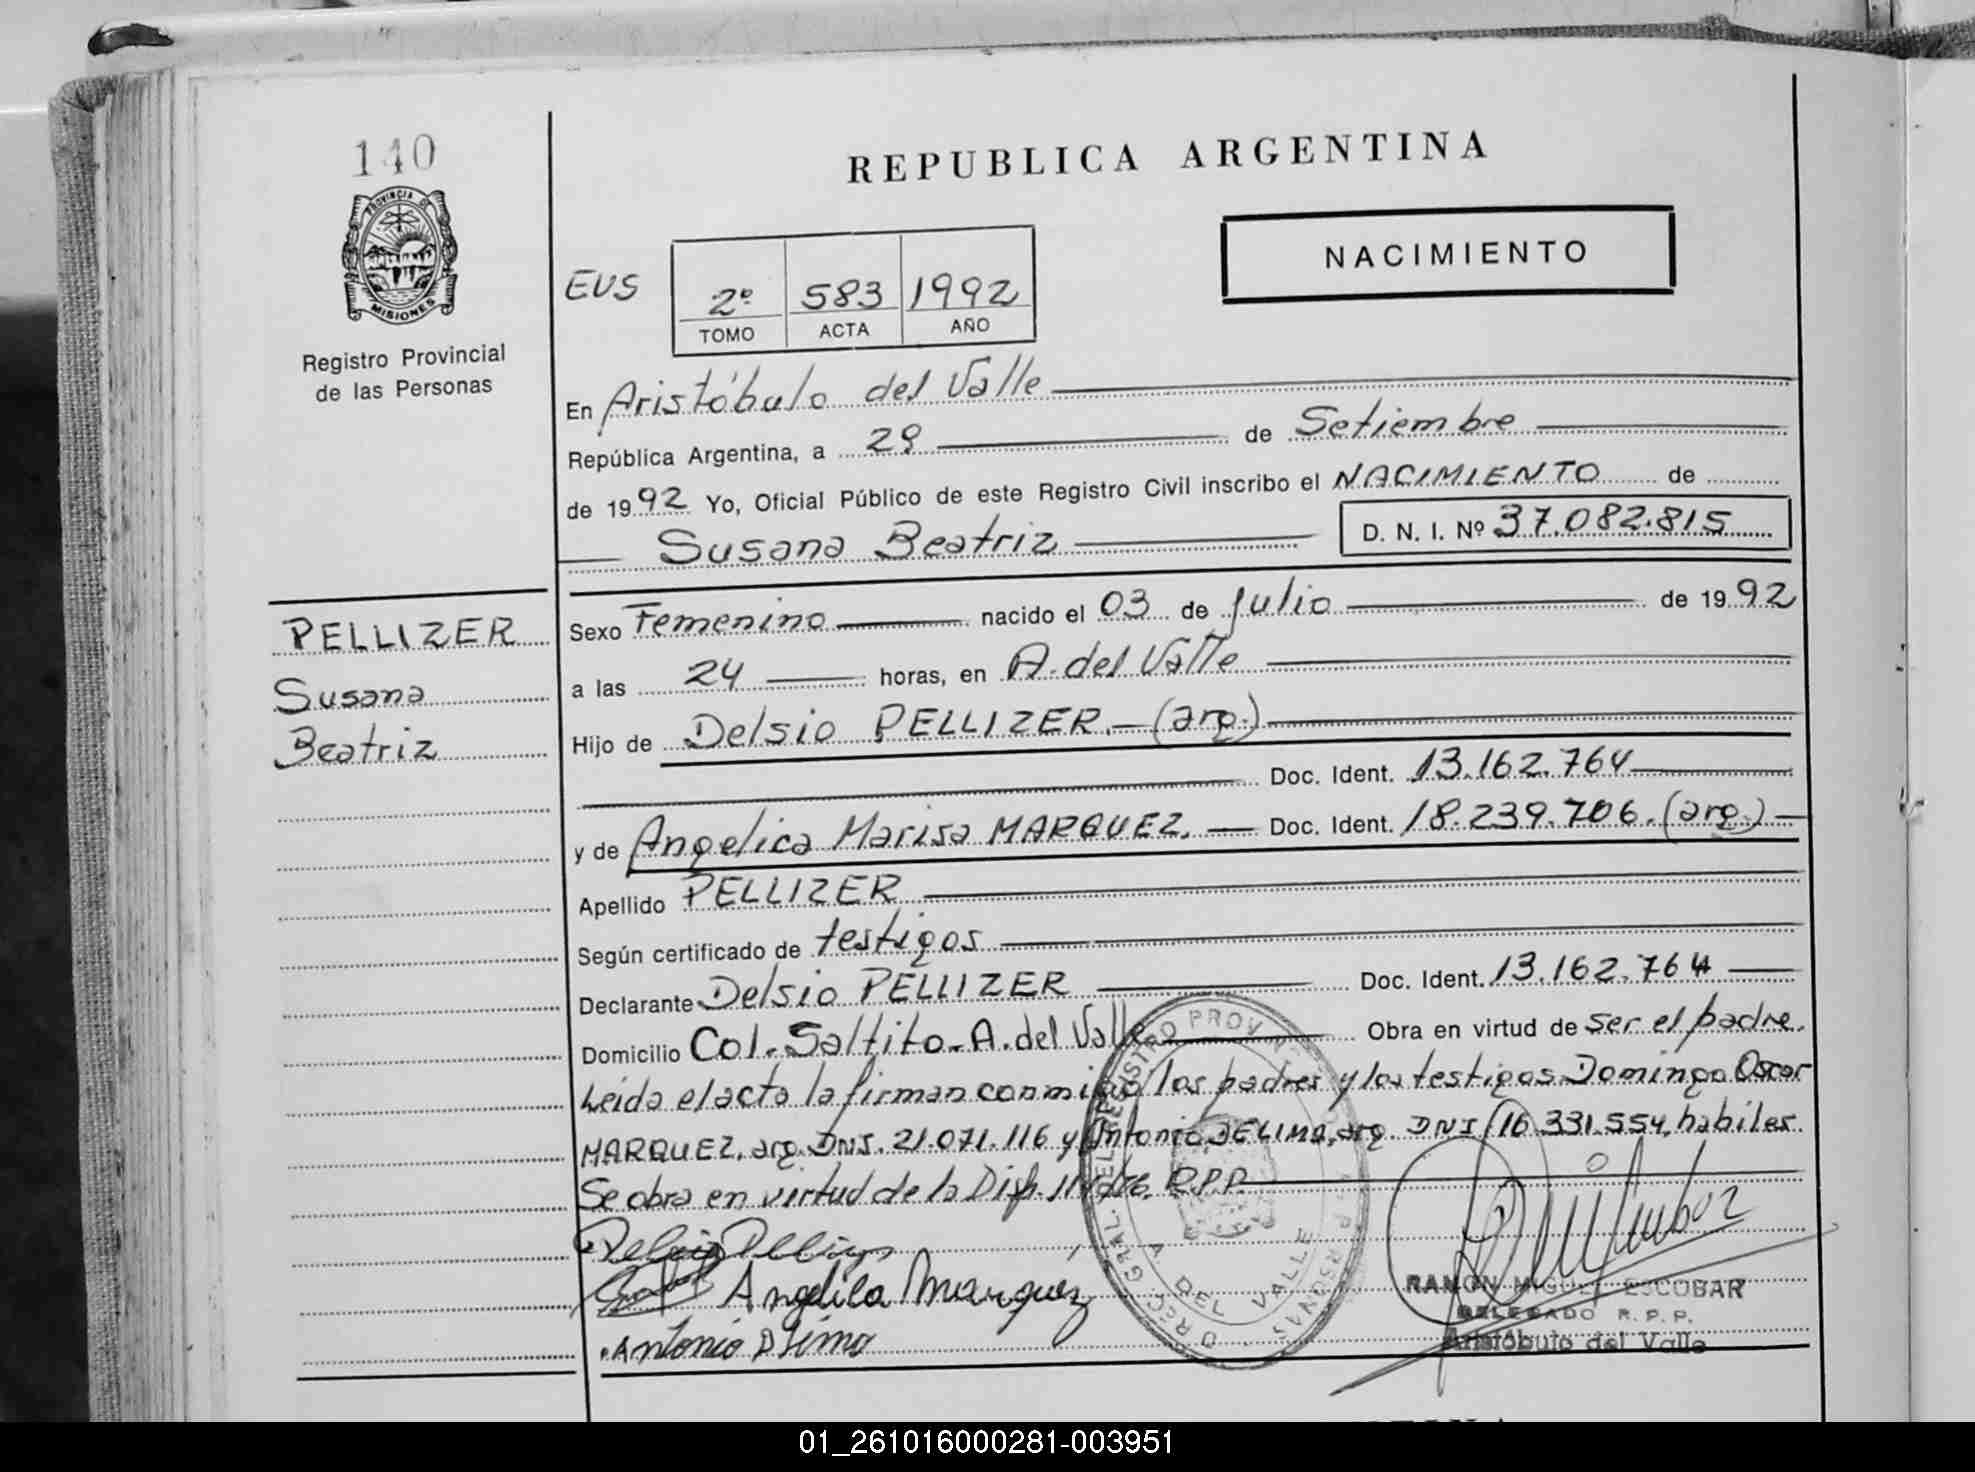 140
PROVINCIA DE
MISIONES
Registro Provincial
de las Personas
REPUBLICA ARGENTINA
NACIMIENTO
EUS
2º 583 1992
TOMO ACTA AÑO
En Aristóbulo del Valle
República Argentina, a 28 de Setiembre
de 1992 Yo, Oficial Público de este Registro Civil inscribo el NACIMIENTO de
Susana Beatriz D. N. I. Nº 37.082.815
PELLIZER
Susana
Beatriz
Sexo Femenino nacido el 03 de Julio de 1992
a las 24 horas, en A. del Valle
Hijo de Delsio PELLIZER.-(arg.)
Doc. Ident. 13.162.764
y de Angelica Marisa MARQUEZ. Doc. Ident. 18.239.706.(arg.)
Apellido PELLIZER
Según certificado de testigos
Declarante Delsio PELLIZER Doc. Ident. 13.162.764
Domicilio Col. Saltito-A. del Valle Obra en virtud de ser el padre.
Leida el acta la firman conmigo los padres y los testigos Domingo Oscar
MARQUEZ, arg. DNI. 21.071.116 y Antonio DELIMA, arg. DNI 16.331.554, habiles.
Se obra en virtud de la Disp. R.P.P.
Angelica Marquez
Antonio D Lima
A. DEL VALLE
RAMON MIGUEL ESCOBAR
DELEGADO R. P. P.
Aristóbulo del Valle
01_261016000281-003951